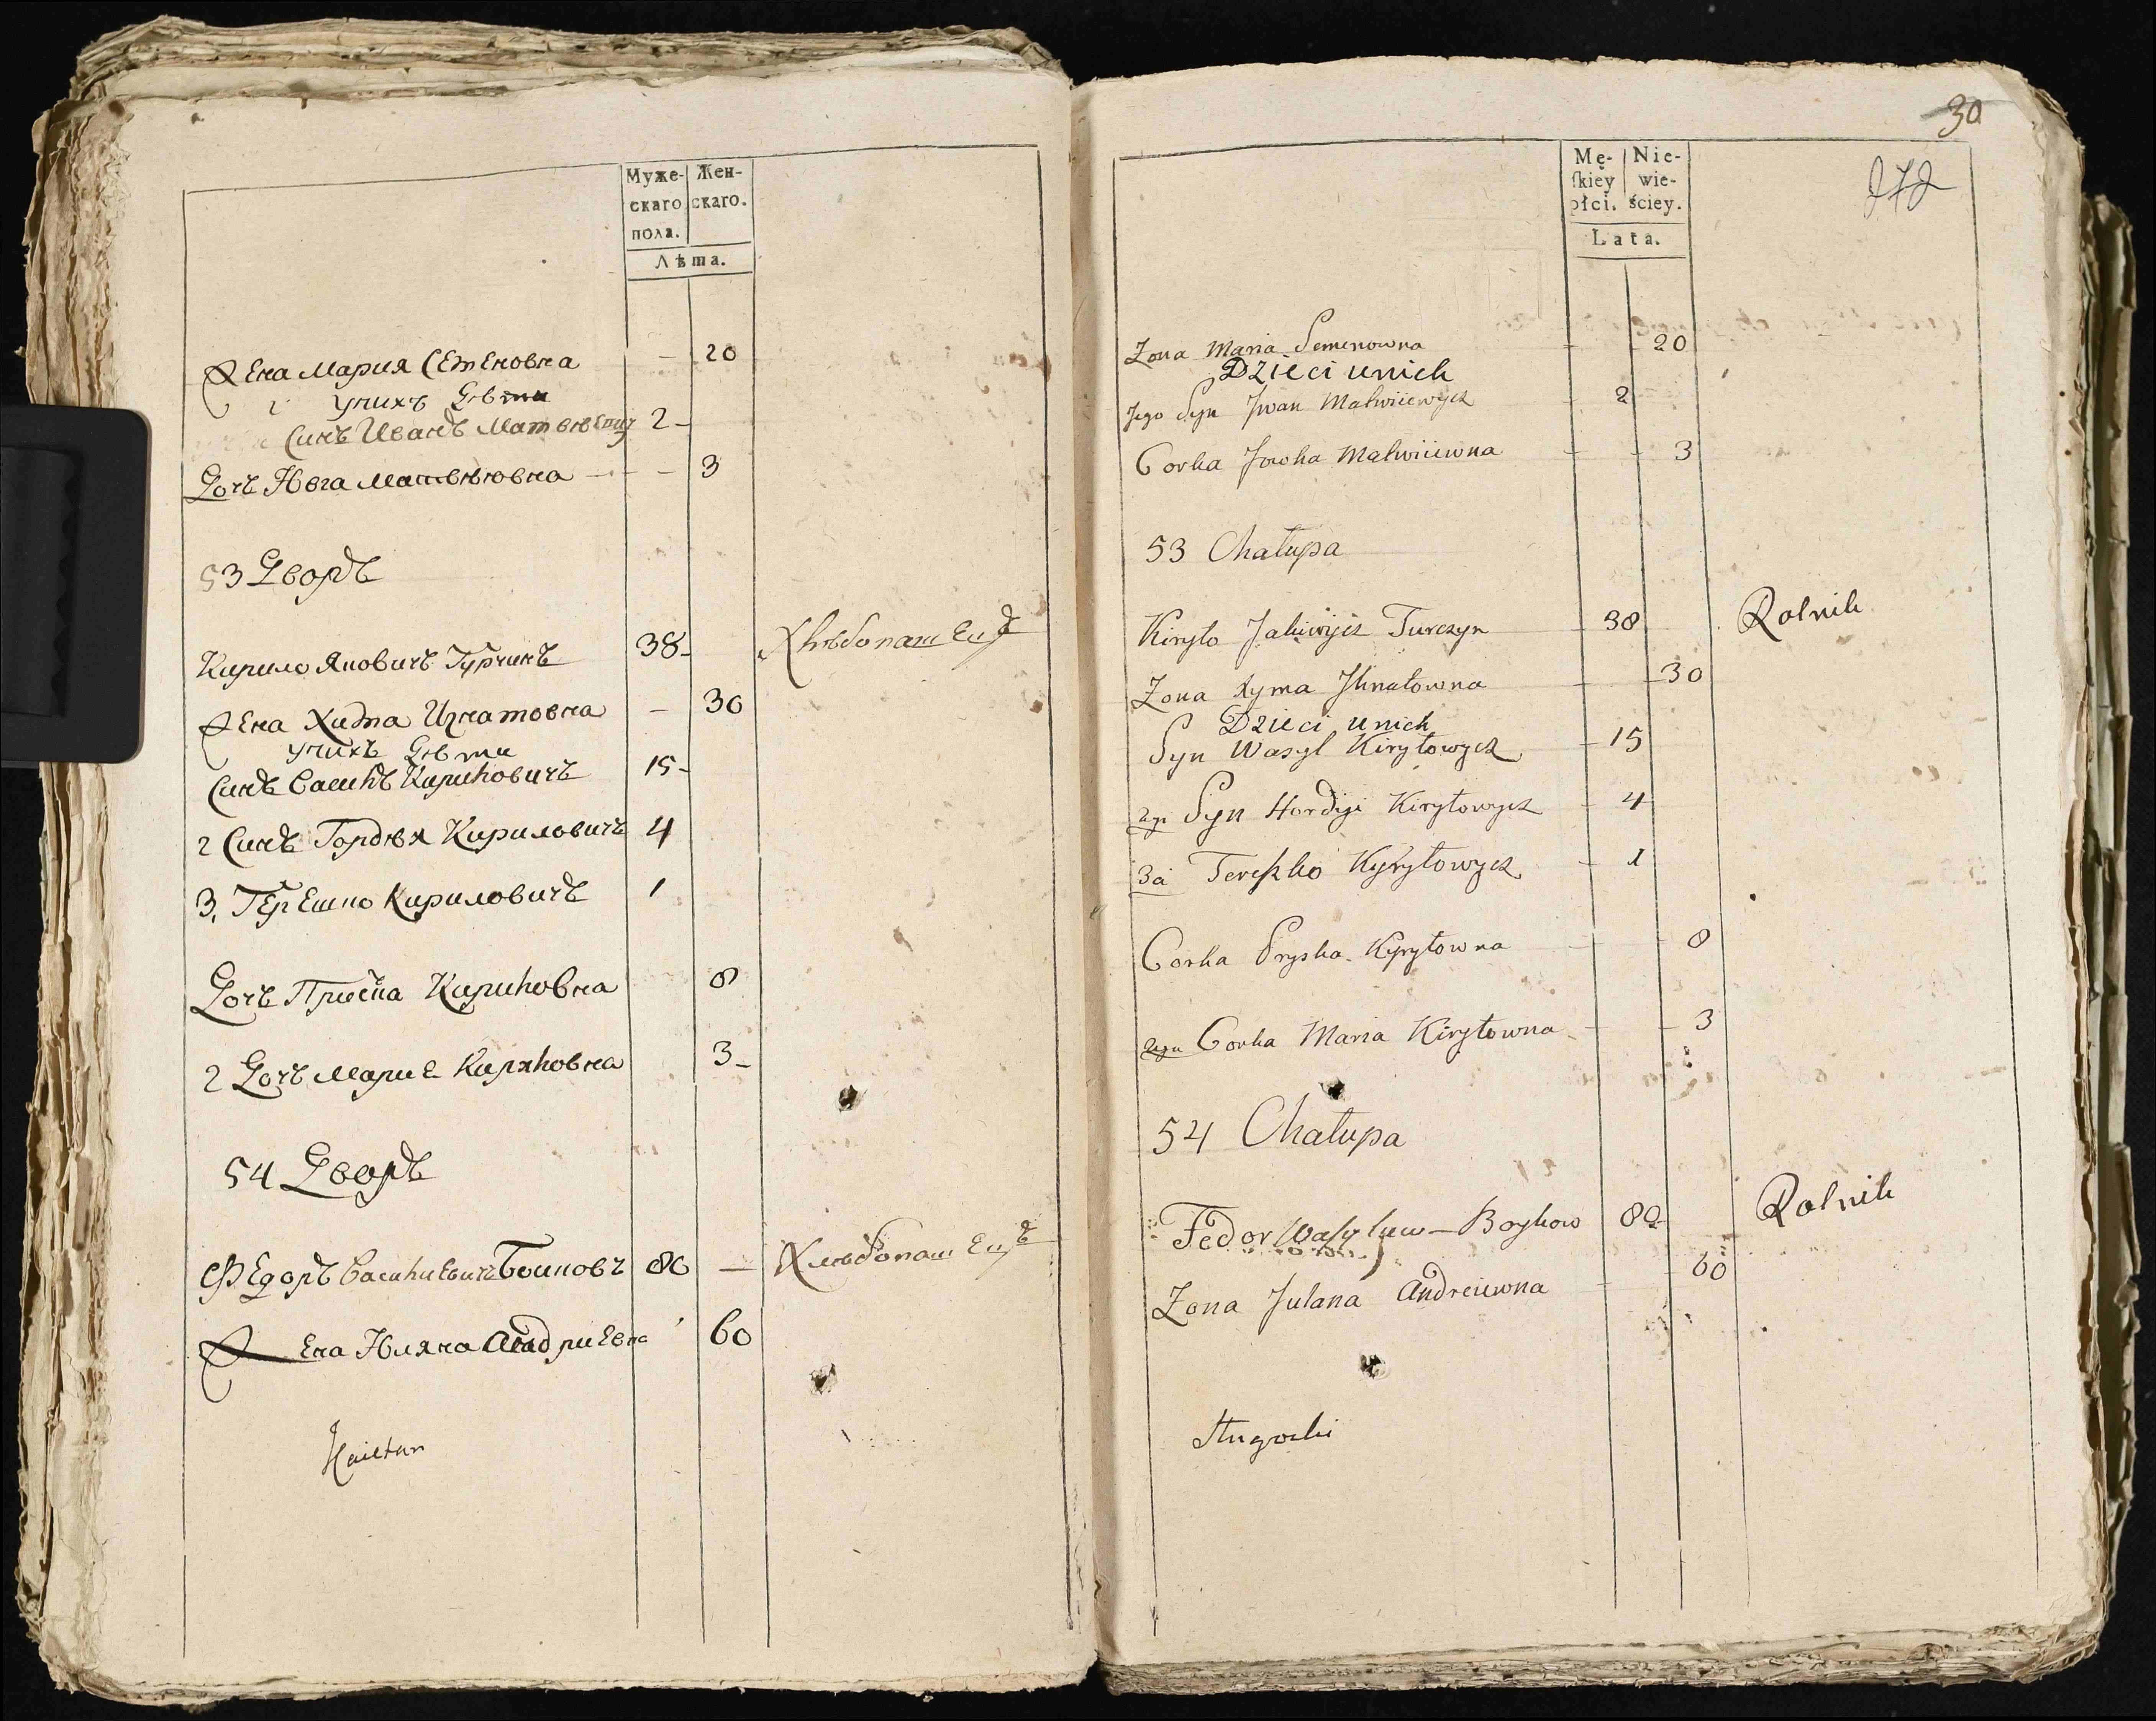 Муже- Жен-
скаго скаго.
пола.
Лѣта.
Жена Мария Семеновна — 20
у них дѣти
Синъ Иванъ Матвѣевич 2
Дочъ Ювга Матвѣювна — 3
53 Дворъ
Кирило Яковичъ Турчинъ 38 Хлѣбопашецъ
Жена Химa Игнатовна — 30
у нихъ дѣти
Синъ Василъ Кириловичъ 15
2 Синъ Гордѣй Кириловичъ 4
3, Терешко Кириловичъ 1
Дочъ Приска Кириловна 8
2 Дочъ Марие Кириловна 3
54 Дворъ
Федоръ Василиевичъ Боиковъ 80 — Хлѣбопашецъ
Жена Юляна Андриевна 60
30
272
Mę- Nie-
ſkiey wie-
płci. ściey.
Lata.
Zona Maria Semenowna 20
Dzieci unich
Jego Syn Jwan Matwiiewycz 2
Corka Jowha Matwiiewna 3
53 Chałupa
Kiryło Jakiwycz Turczyn 38 Rolnik
Zona Xyma Jhnatowna 30
Dzieci unich
Syn Wasyl Kiryłowycz 15
2gi Syn Hordyi Kiryłowycz 4
3ci Tereszko Kyryłowycz 1
Corka Pryska Kyryłowna 8
2ga Corka Maria Kiryłowna 3
54 Chałupa
Fedor Wasylew Boykow 80 Rolnik
Zona Julana Andreiewna 60